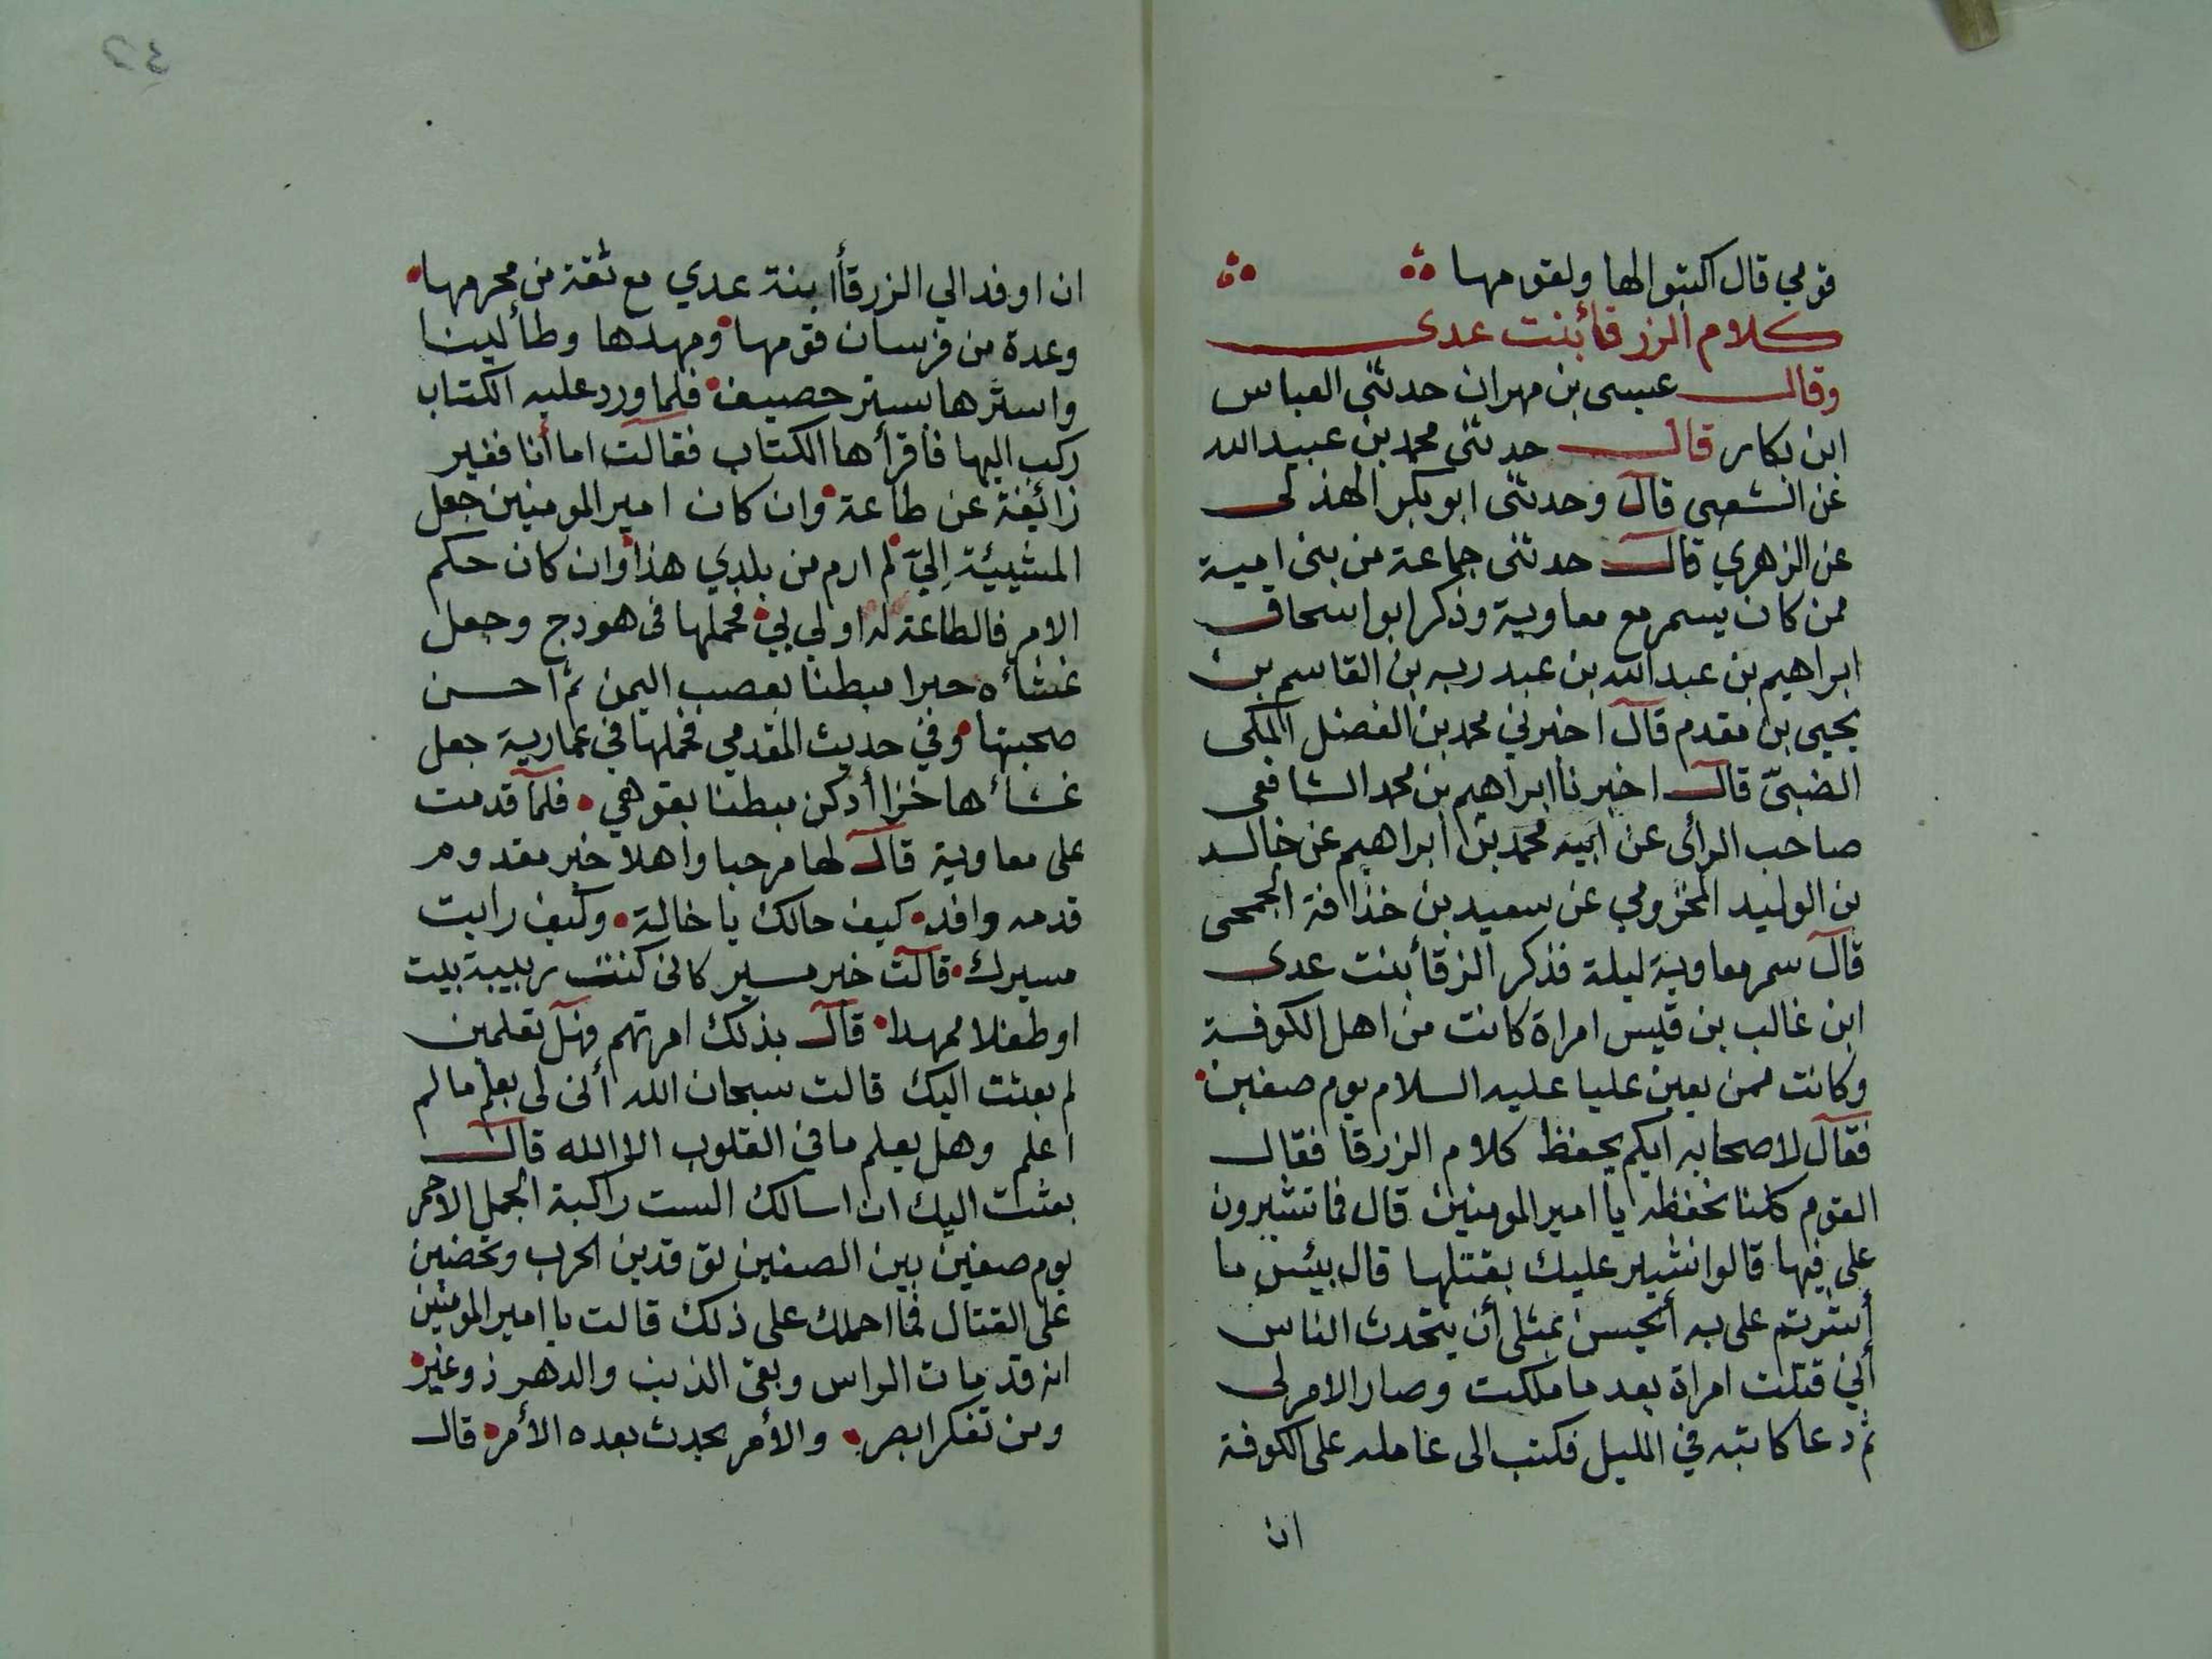 قومي قال اكتبوا لها ولقومها
كلام الزرقأ بنت عدى
وقال عيسى بن مهران حدثنى العباس
ابن بكار قال حدثنى محمد بن عبيد الله
عن الشعبي قال وحدثنى ابو بكر الهذلى
عن الزهري قال حدثنى جماعة من بنى امية
ممن كان يسمر مع معاوية وذكر ابو اسحاق
ابراهيم بن عبد الله بن عبد ربه بن القاسم بن
يحيى بن مقدم قال اخبرني محمد بن الفضل المكى
الضبىّ قال اخبرنا ابراهيم بن محمد الشافعى
صاحب الرأى عن ابيه محمد بن ابراهيم عن خالد
بن الوليد المخزومي عن سعيد بن خذافة الجمحى
قال سمر معاوية ليلة فذكر الزرقأ بنت عدى
ابن غالب بن قيس امراة كانت من اهل الكوفة
وكانت ممن يعين عليا عليه السلام يوم صفين
فقال لاصحابه ايكم يحفظ كلام الزرقا فقال
القوم كلنا نحفظه يا امير المومنين قال فما تشيرون
على فيها قالوا نشير عليك بقتلها قال بيئس ما
أشرتم على به أيحسن بمثلى أن يتحدث الناس
أني قتلت امراة بعد ما ملكت وصار الامر لى
ثم دعا كاتبه في الليل فكتب الى عامله على الكوفة
ان
٤٢
ان اوفد الي الزرقأ ابنة عدي مع ثقة من محرمها
وعدة من فرسان قومها ومهدها وطأ لينا
واسترها بستر حصيف فلما ورد عليه الكتاب
ركب اليها فأقرأها الكتاب فقالت اما أنا فغير
زائغة عن طاعة وان كان امير المومنين جعل
المشيئة اليّ لم ارم من بلدي هذا وان كان حكم
الامر فالطاعة له اولي بي فحملها فى هودج وجعل
غشأه حبرا مبطنا بعصب اليمن ثم احسن
صحبتها وفي حديث المقدمي فحملها في عمارية جعل
غشأها خزا أدكن مبطنا بقوهي فلما قدمت
على معاوية قال لها مرحبا واهلا خير مقدوم
قدمه وافد كيف حالك يا خالة وكيف رايت
مسيرك قالت خير مسير كانى كنت ربيبة بيت
او طفلا ممهدا قال بذلك امرتهم وهل تعلمين
لم بعثت اليك قالت سبحان الله أنى لى بعلم ما لم
اعلم وهل يعلم ما في القلوب الا الله قال
بعثت اليك ان اسالك الست راكبة الجمل الاحمر
يوم صفين بين الصفين توقدين الحرب وتحضين
على القتال فما احملك على ذلك قالت يا امير المومنين
انه قد مات الراس وبقى الذنب والدهر ذو غير
ومن تفكر ابصر والأمر يحدث بعده الأمر قال